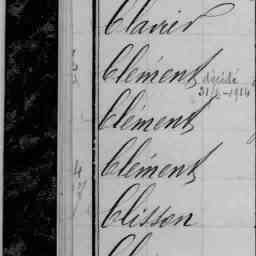 Clavier
Clément décédé
31/6-1914
Clément
Clément
Clisson